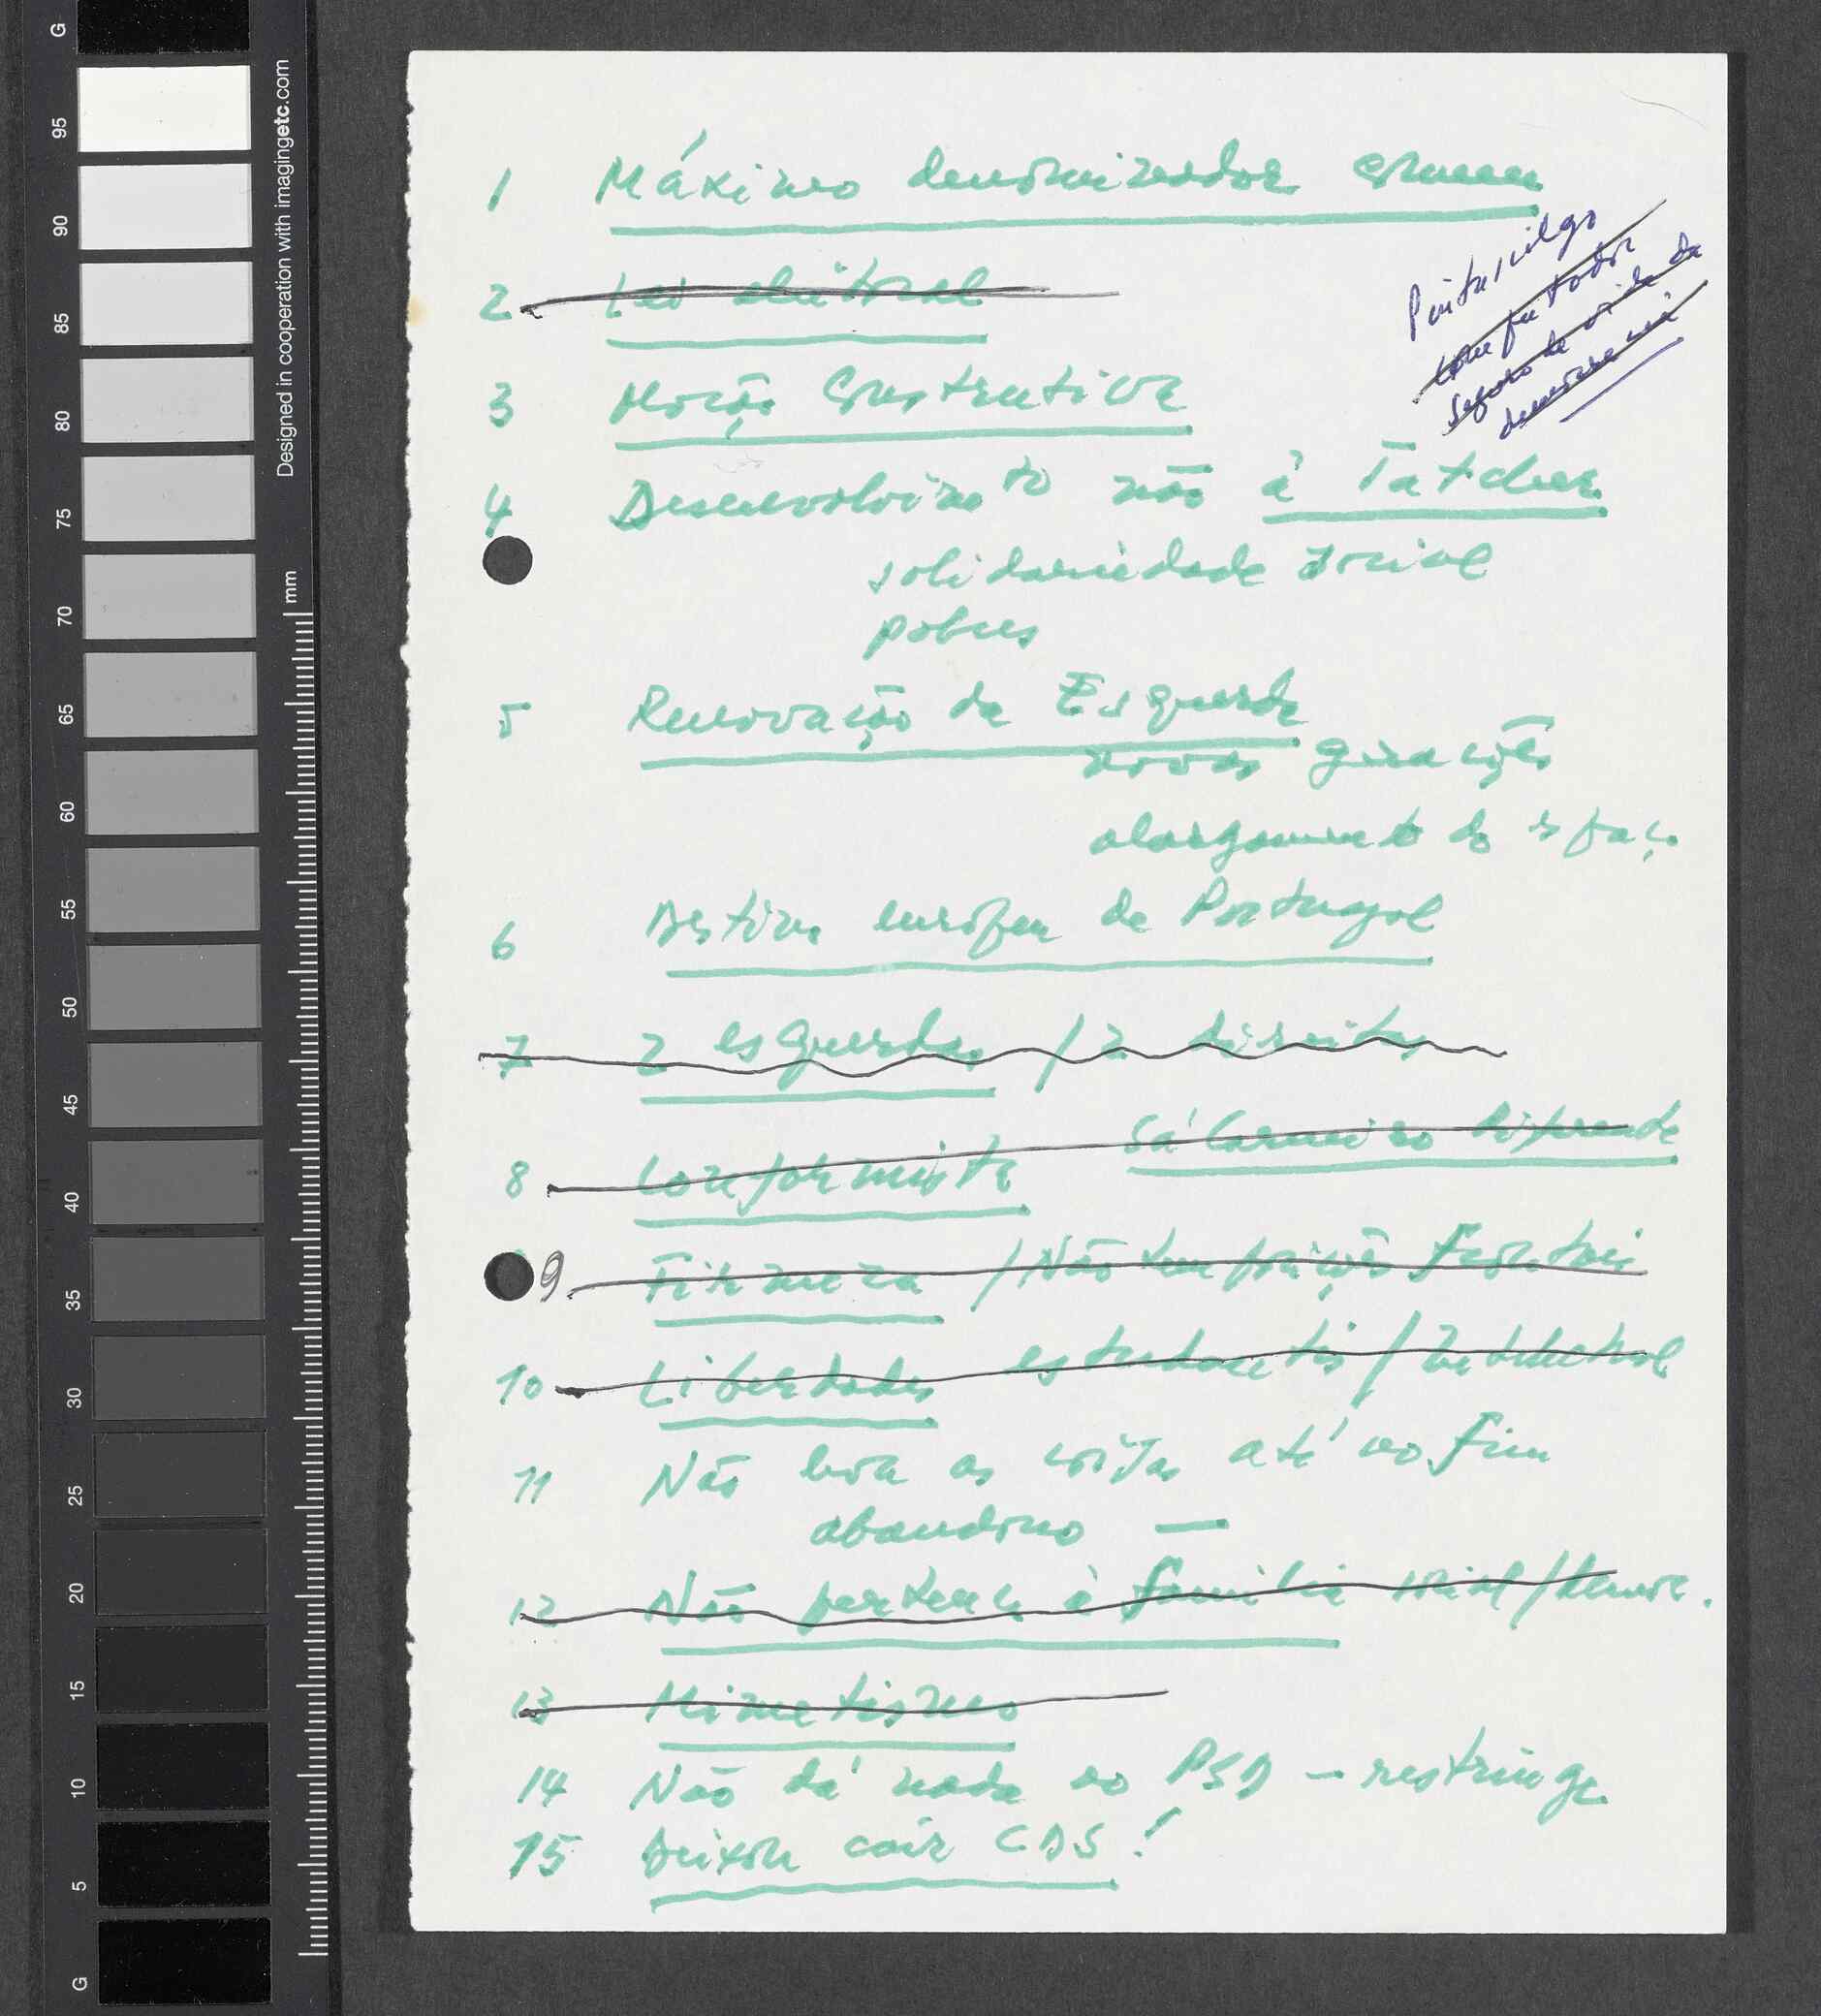 1 Máximo denominador comum
Pintasilgo
computador
seguro de vida da
democracia
2 Lei eleitoral
3 Moção Construtiva
4 Desenvolvimto não à Tatcher
solidariedade social
pobres
5 Renovação da Esquerda
novas gerações
alargamento do espaço
6 Destino europeu de Portugal
7 2 esquerdas / 2 direitas
8 Conformista Sá Carneiro diferente
9 Firmeza / Não tem posição
10 Liberdades estudantis / intelectual
11 Não leva as coisas até ao fim
abandono —
12 Não pertence à família social/democ.
13 Mimetismo
14 Não dá nada ao PSD – restringe
15 Deixou cair CDS!
G
95
90
85
80
75
70
65
60
55
50
45
40
35
30
25
20
15
10
5
G
mm
Designed in cooperation with imagingetc.com